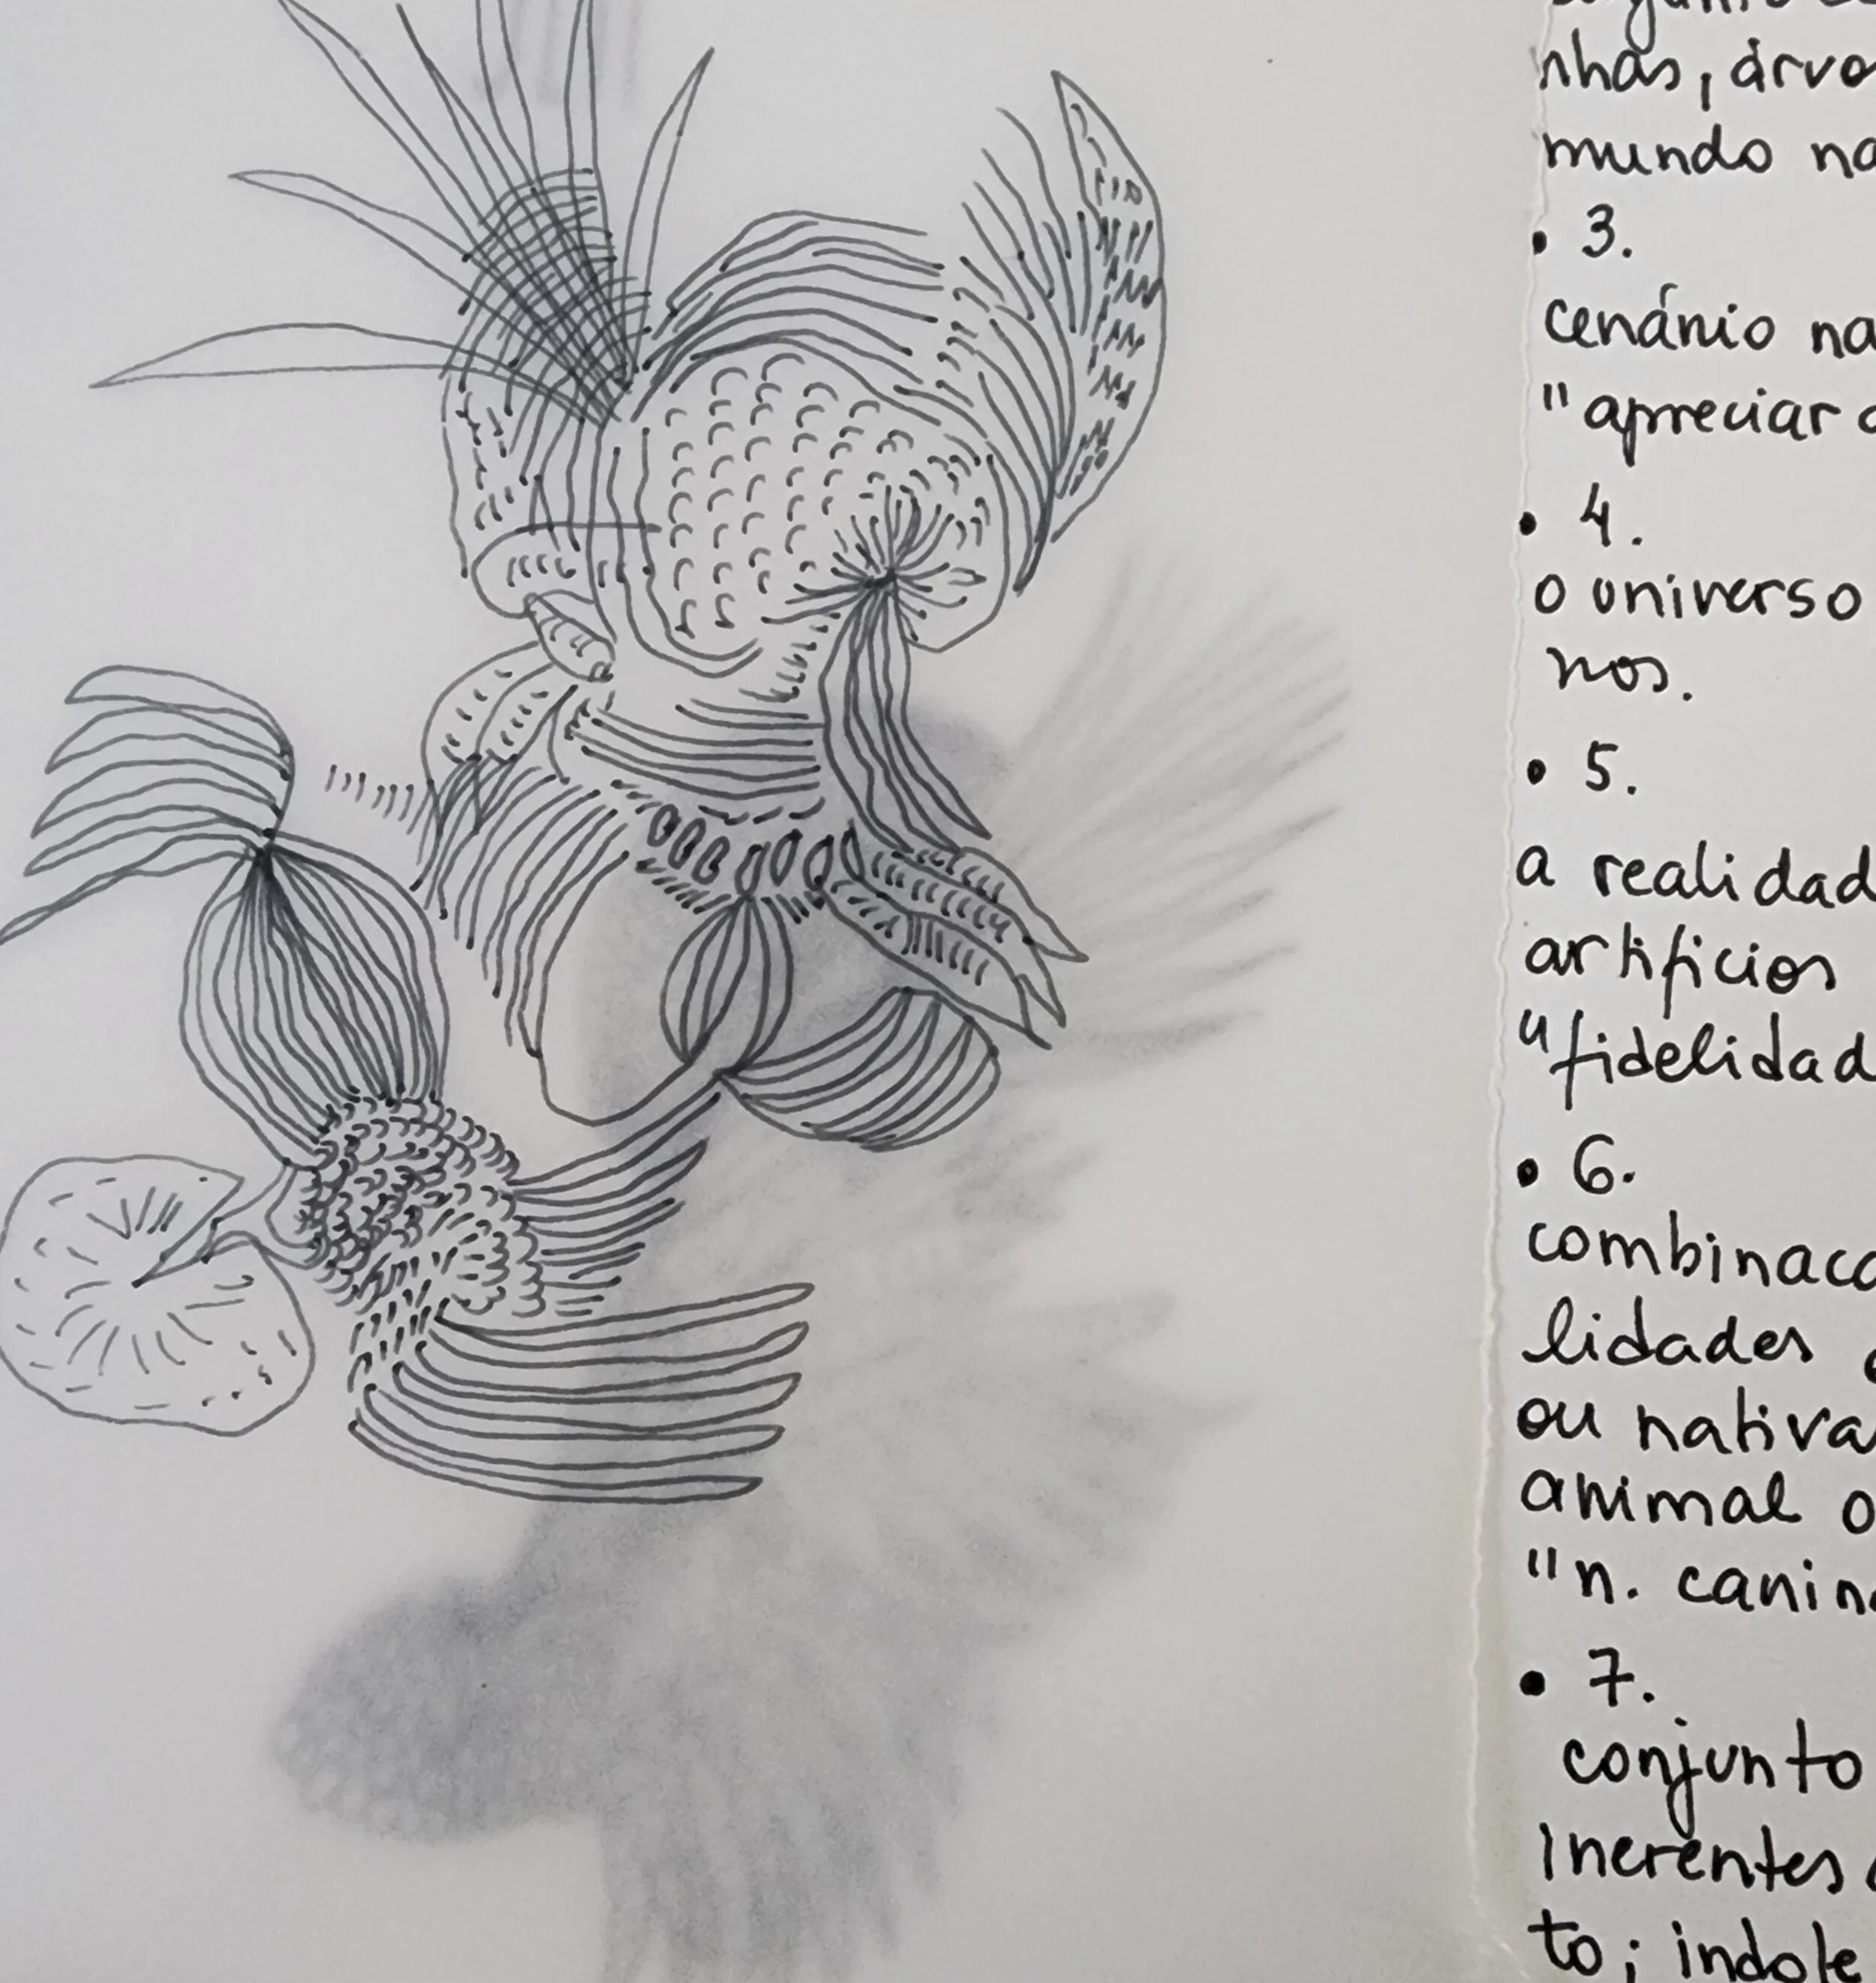 nhas, árvo
mundo na
• 3.
cenário na
"apreciar a
• 4.
o universo
nos.
• 5.
a realidad
artifícios
"fidelidad
• 6.
combinaco
lidades
ou nativa
animal o
"n. canin
• 7.
conjunto
inerentes
to; indole